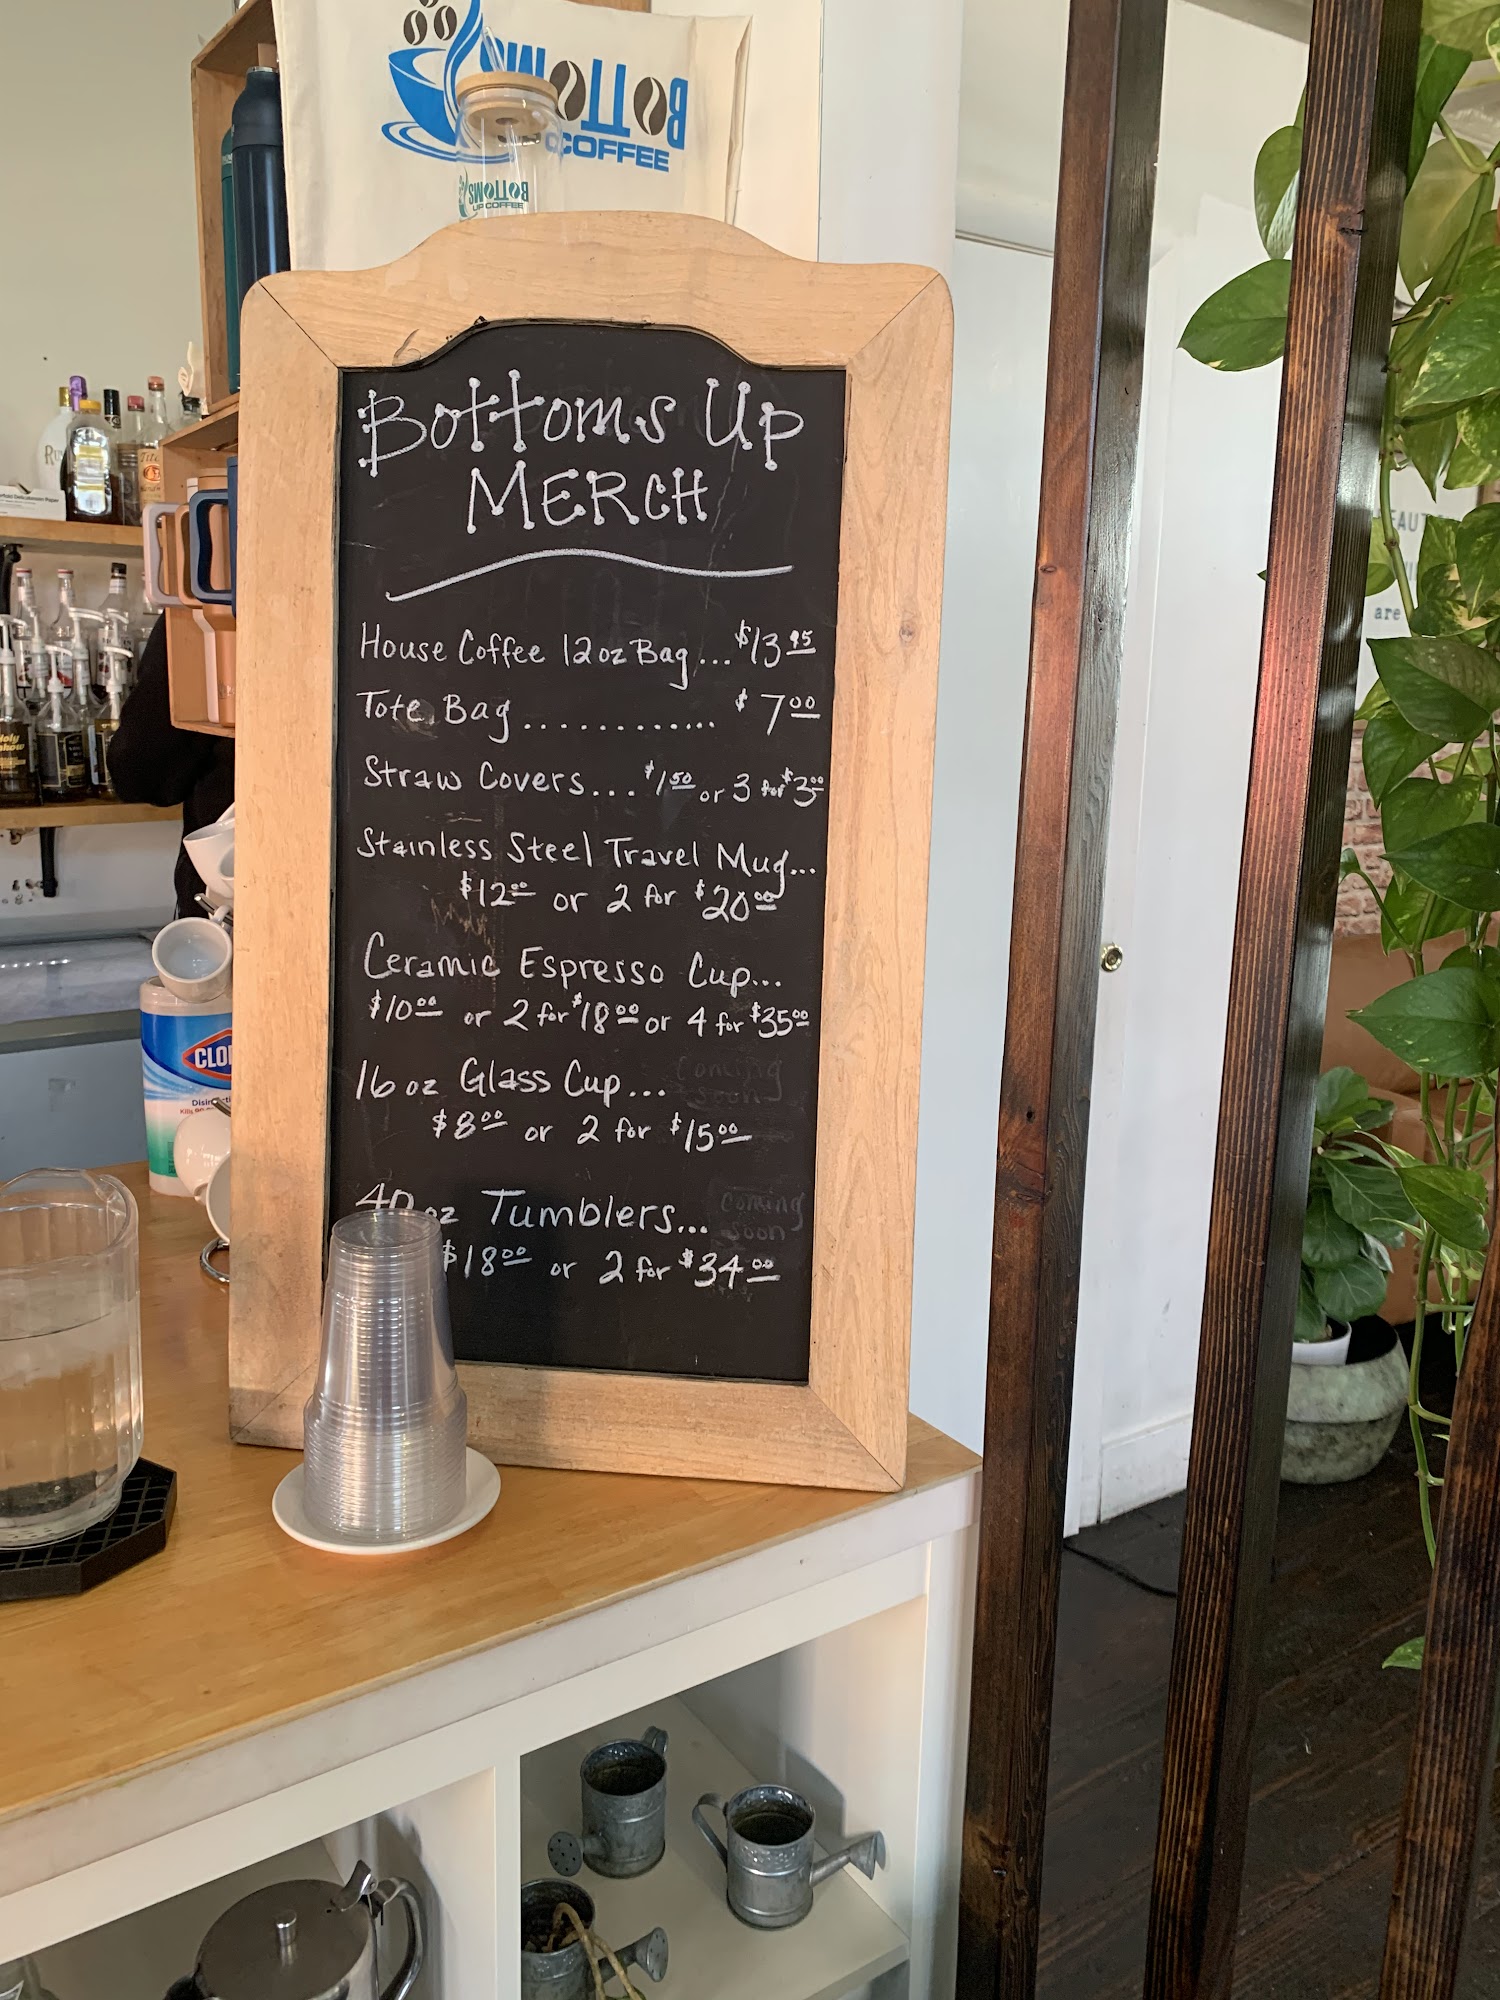 BOTTOMS
UP COFFEE
BOTTOMS
UP COFFEE
Bottoms Up
MERCH
House Coffee 12oz Bag... $13.95
Tote Bag............. $7.00
Straw Covers... $1.50 or 3 for $3.00
Stainless Steel Travel Mug...
$12.00 or 2 for $20.00
Ceramic Espresso Cup...
$10.00 or 2 for $18.00 or 4 for $35.00
16 oz Glass Cup... Coming
Soon
$8.00 or 2 for $15.00
40 oz Tumblers... Coming
Soon
$18.00 or 2 for $34.00
CLO
Tito
are